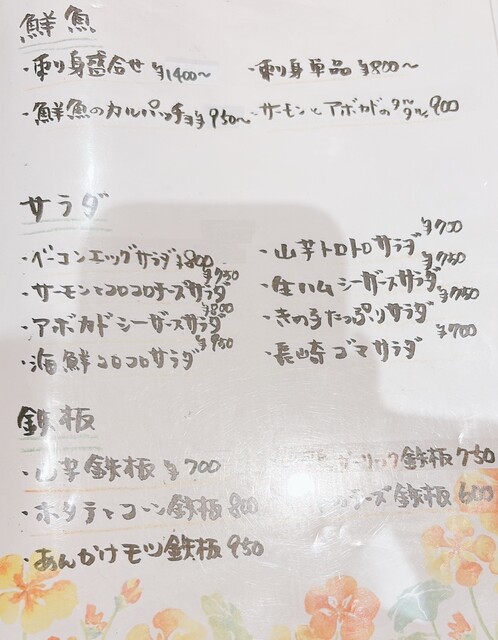 鮮魚
・刺り身盛合せ ¥1400〜
・刺り身単品 ¥800〜
・鮮魚のカルパッチョ ¥950〜
・サーモンとアボカドのタルタル 900
サラダ
・ベーコンエッグサラダ ¥800
・山芋トロトロサラダ ¥700
・サーモンとコロコロチーズサラダ ¥750
・生ハムシーザースサラダ ¥750
・アボカドシーザースサラダ ¥800
・きの子たっぷりサラダ ¥750
・海鮮コロコロサラダ ¥950
・長崎ゴマサラダ ¥700
鉄板
・山芋鉄板 ¥700
ガーリック鉄板 750
・ホタテとコーン鉄板 800
チーズ鉄板 600
・あんかけモツ鉄板 950